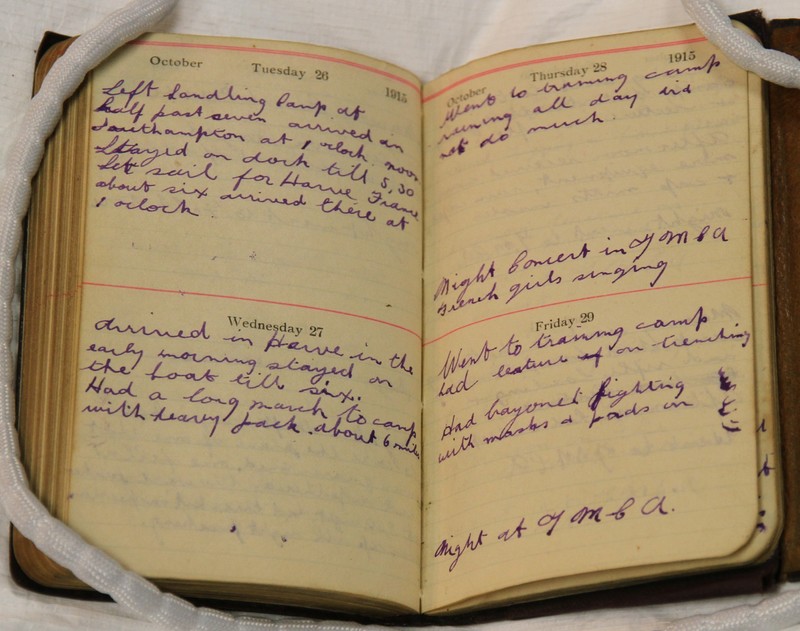 October Tuesday 26 1915
Left Sandling Camp at
half past seven arrived in
Southampton at 1 oclock noon
Stayed on dock till 5,30
Left sail for Havre, France
about six arrived there at
1 oclock.
Wednesday 27
Arrived in Havre in the
early morning stayed on
the boat till six.
Had a long march to camp
with heavy pack. about 6 miles
October Thursday 28 1915
Went to training camp
raining all day did
not do much.
Night Concert in Y M C A
French girls singing
Friday 29
Went to training camp
had leature of on trenching
Had bayonet fighting
with masks & pads on
Night at Y M C A.